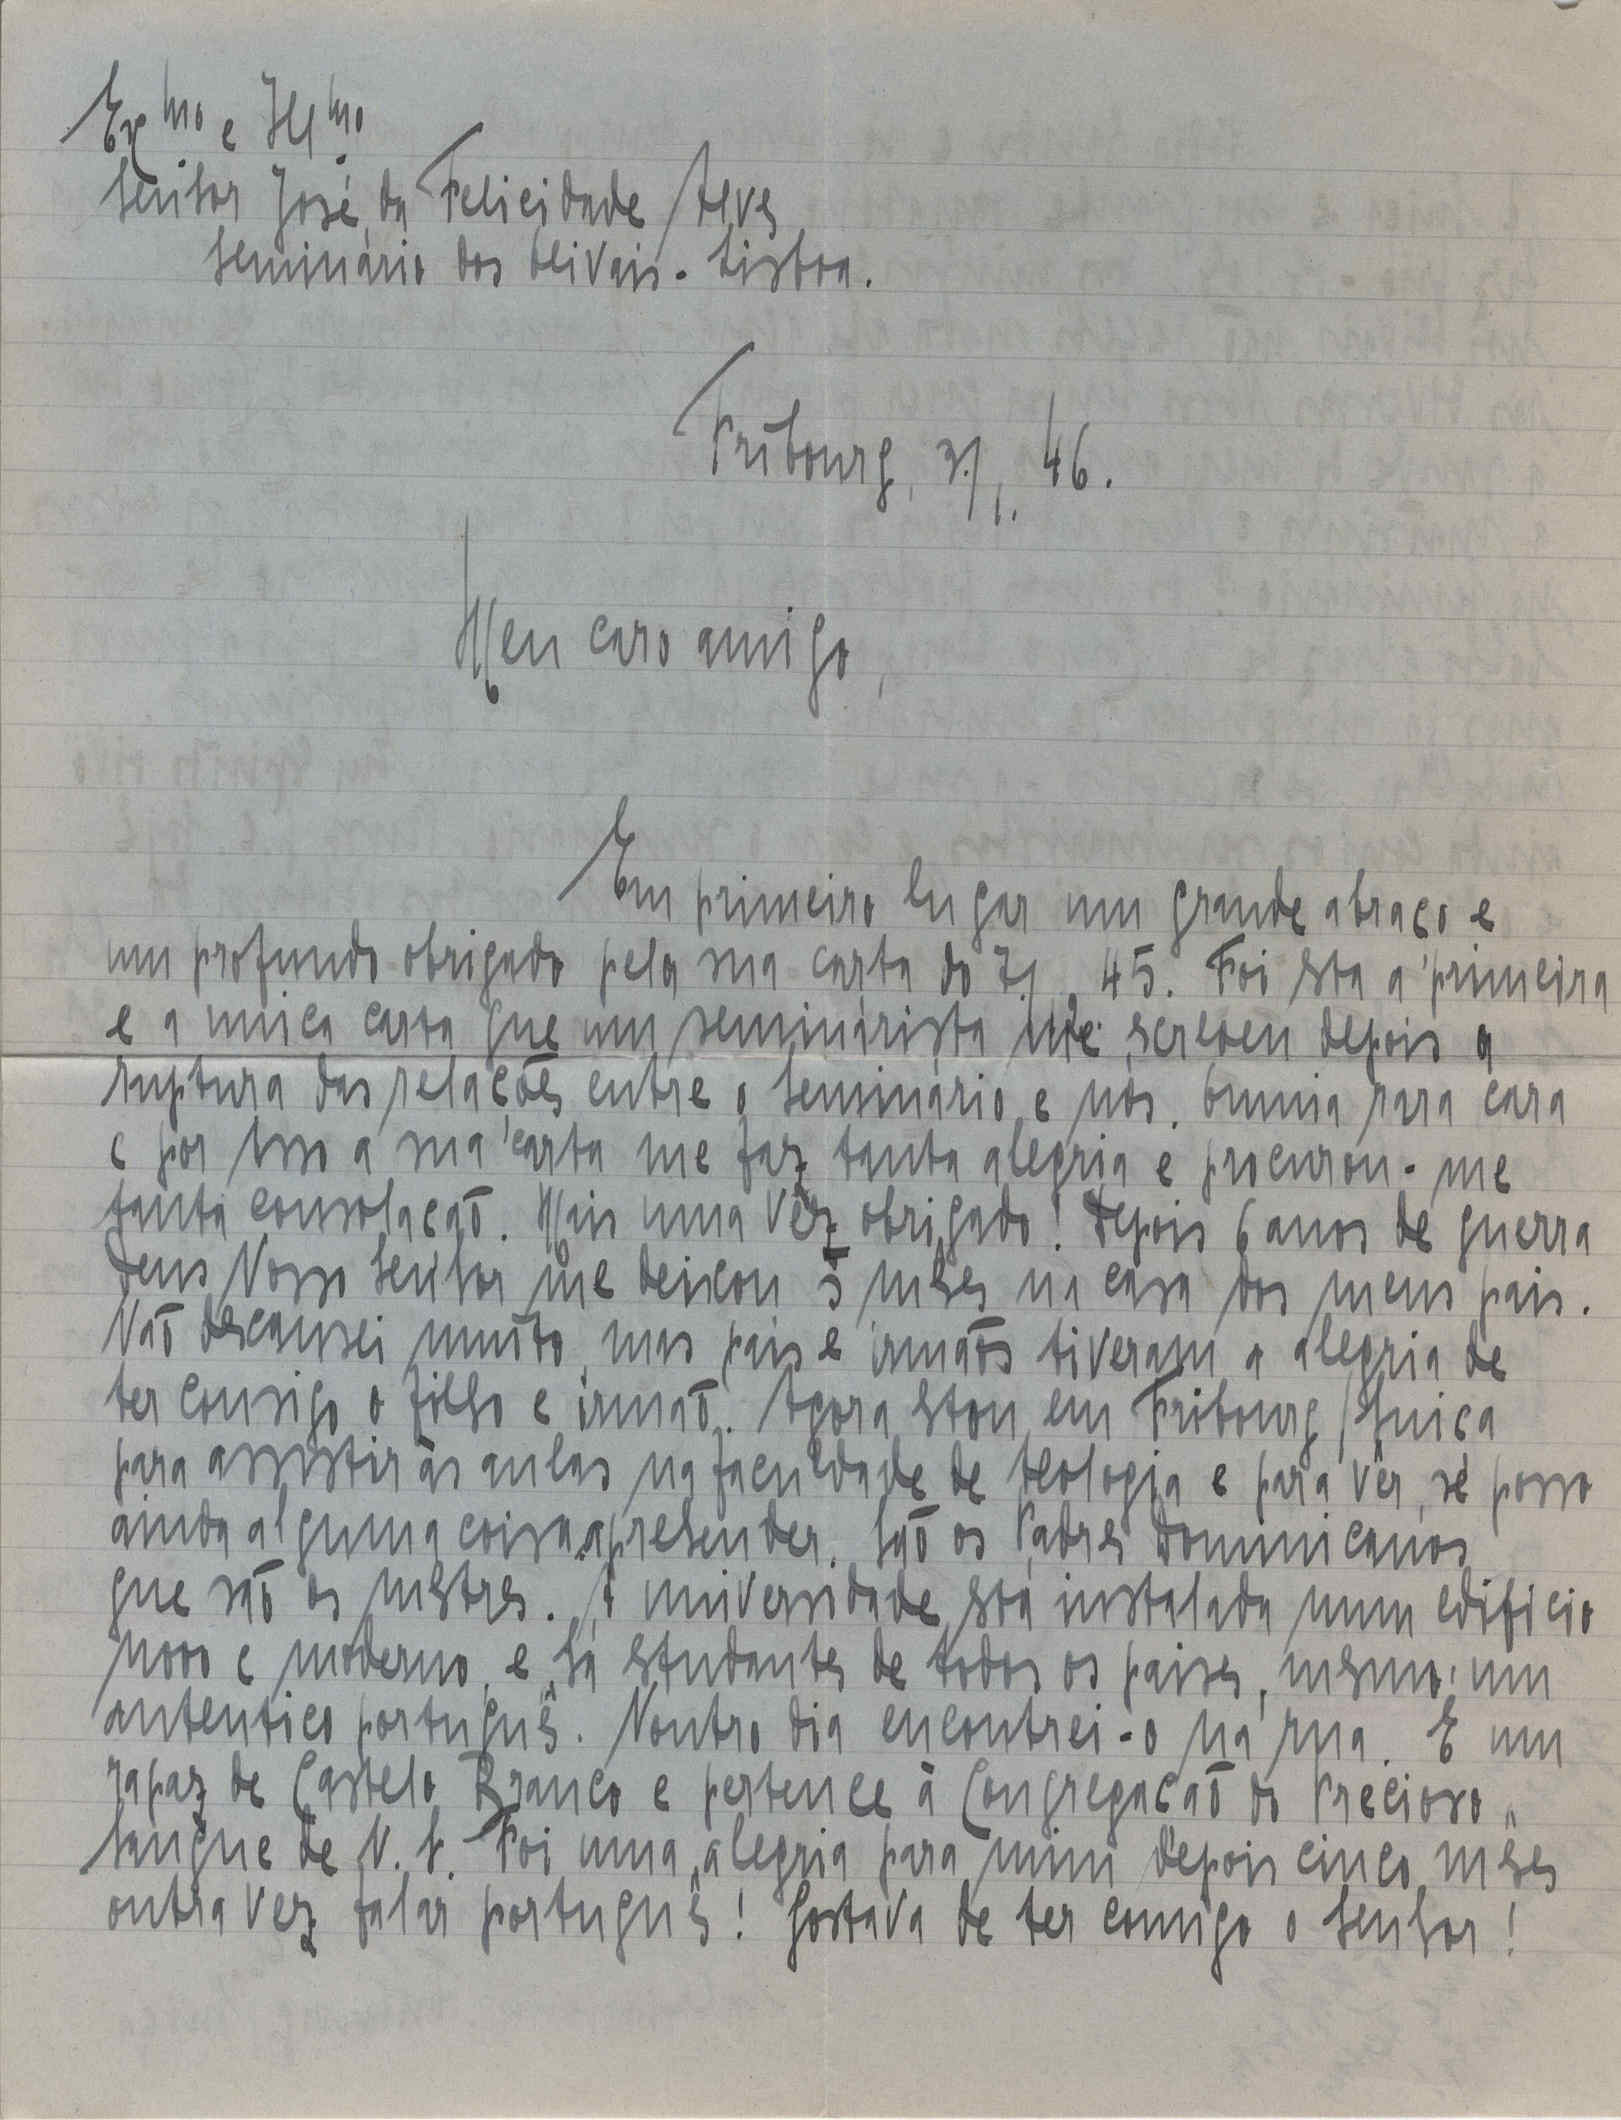 Ex.mo e Ill.mo
Senhor José da Felicidade Alves
Seminário dos Olivais - Lisboa.
Fribourg, 31/1. 46.
Meu caro amigo,
Em primeiro lugar um grande abraço e
um profundo obrigado pela sua carta do 7/, 45. Foi esta a primeira
e a unica carta que um seminarista me escreveu depois a
ruptura das relações entre o Seminário e nós. Omnia rara cara
e por isso a sua carta me faz tanta alegria e procurou-me
tanta consolação. Mais uma vêz obrigado! Depois 6 anos de guerra
Deus Nosso Senhor me deixou 5 mêses na casa dos meus pais.
Não descansei muito, mas pais e irmãos tiveram a alegria de
ter consigo o filho e irmão. Agora estou em Fribourg/Suiça
para assistir às aulas na faculdade de teologia e para vêr, se posso
ainda alguma coisa apresender. São os Padres Dominicanos
que são os mestres. A universidade está instalada num edificio
novo e moderno, e há estudantes de todos os paises, mesmo um
autentico português. Noutro dia encontrei-o na rua. É um
rapaz de Castelo Branco e pertence à Congregação do Precioso
Sangue de N. S. Foi uma alegria para mim depois cinco mêses
outra vez falar português! Gostava de ter comigo o Senhor!